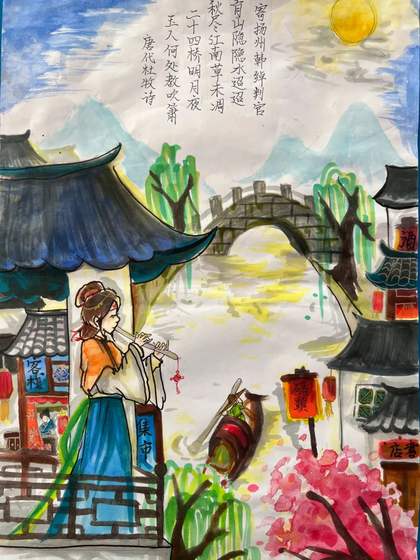 寄扬州韩绰判官
青山隐隐水迢迢
秋尽江南草未凋
二十四桥明月夜
玉人何处教吹箫
唐代杜牧诗
客栈
集市
書店